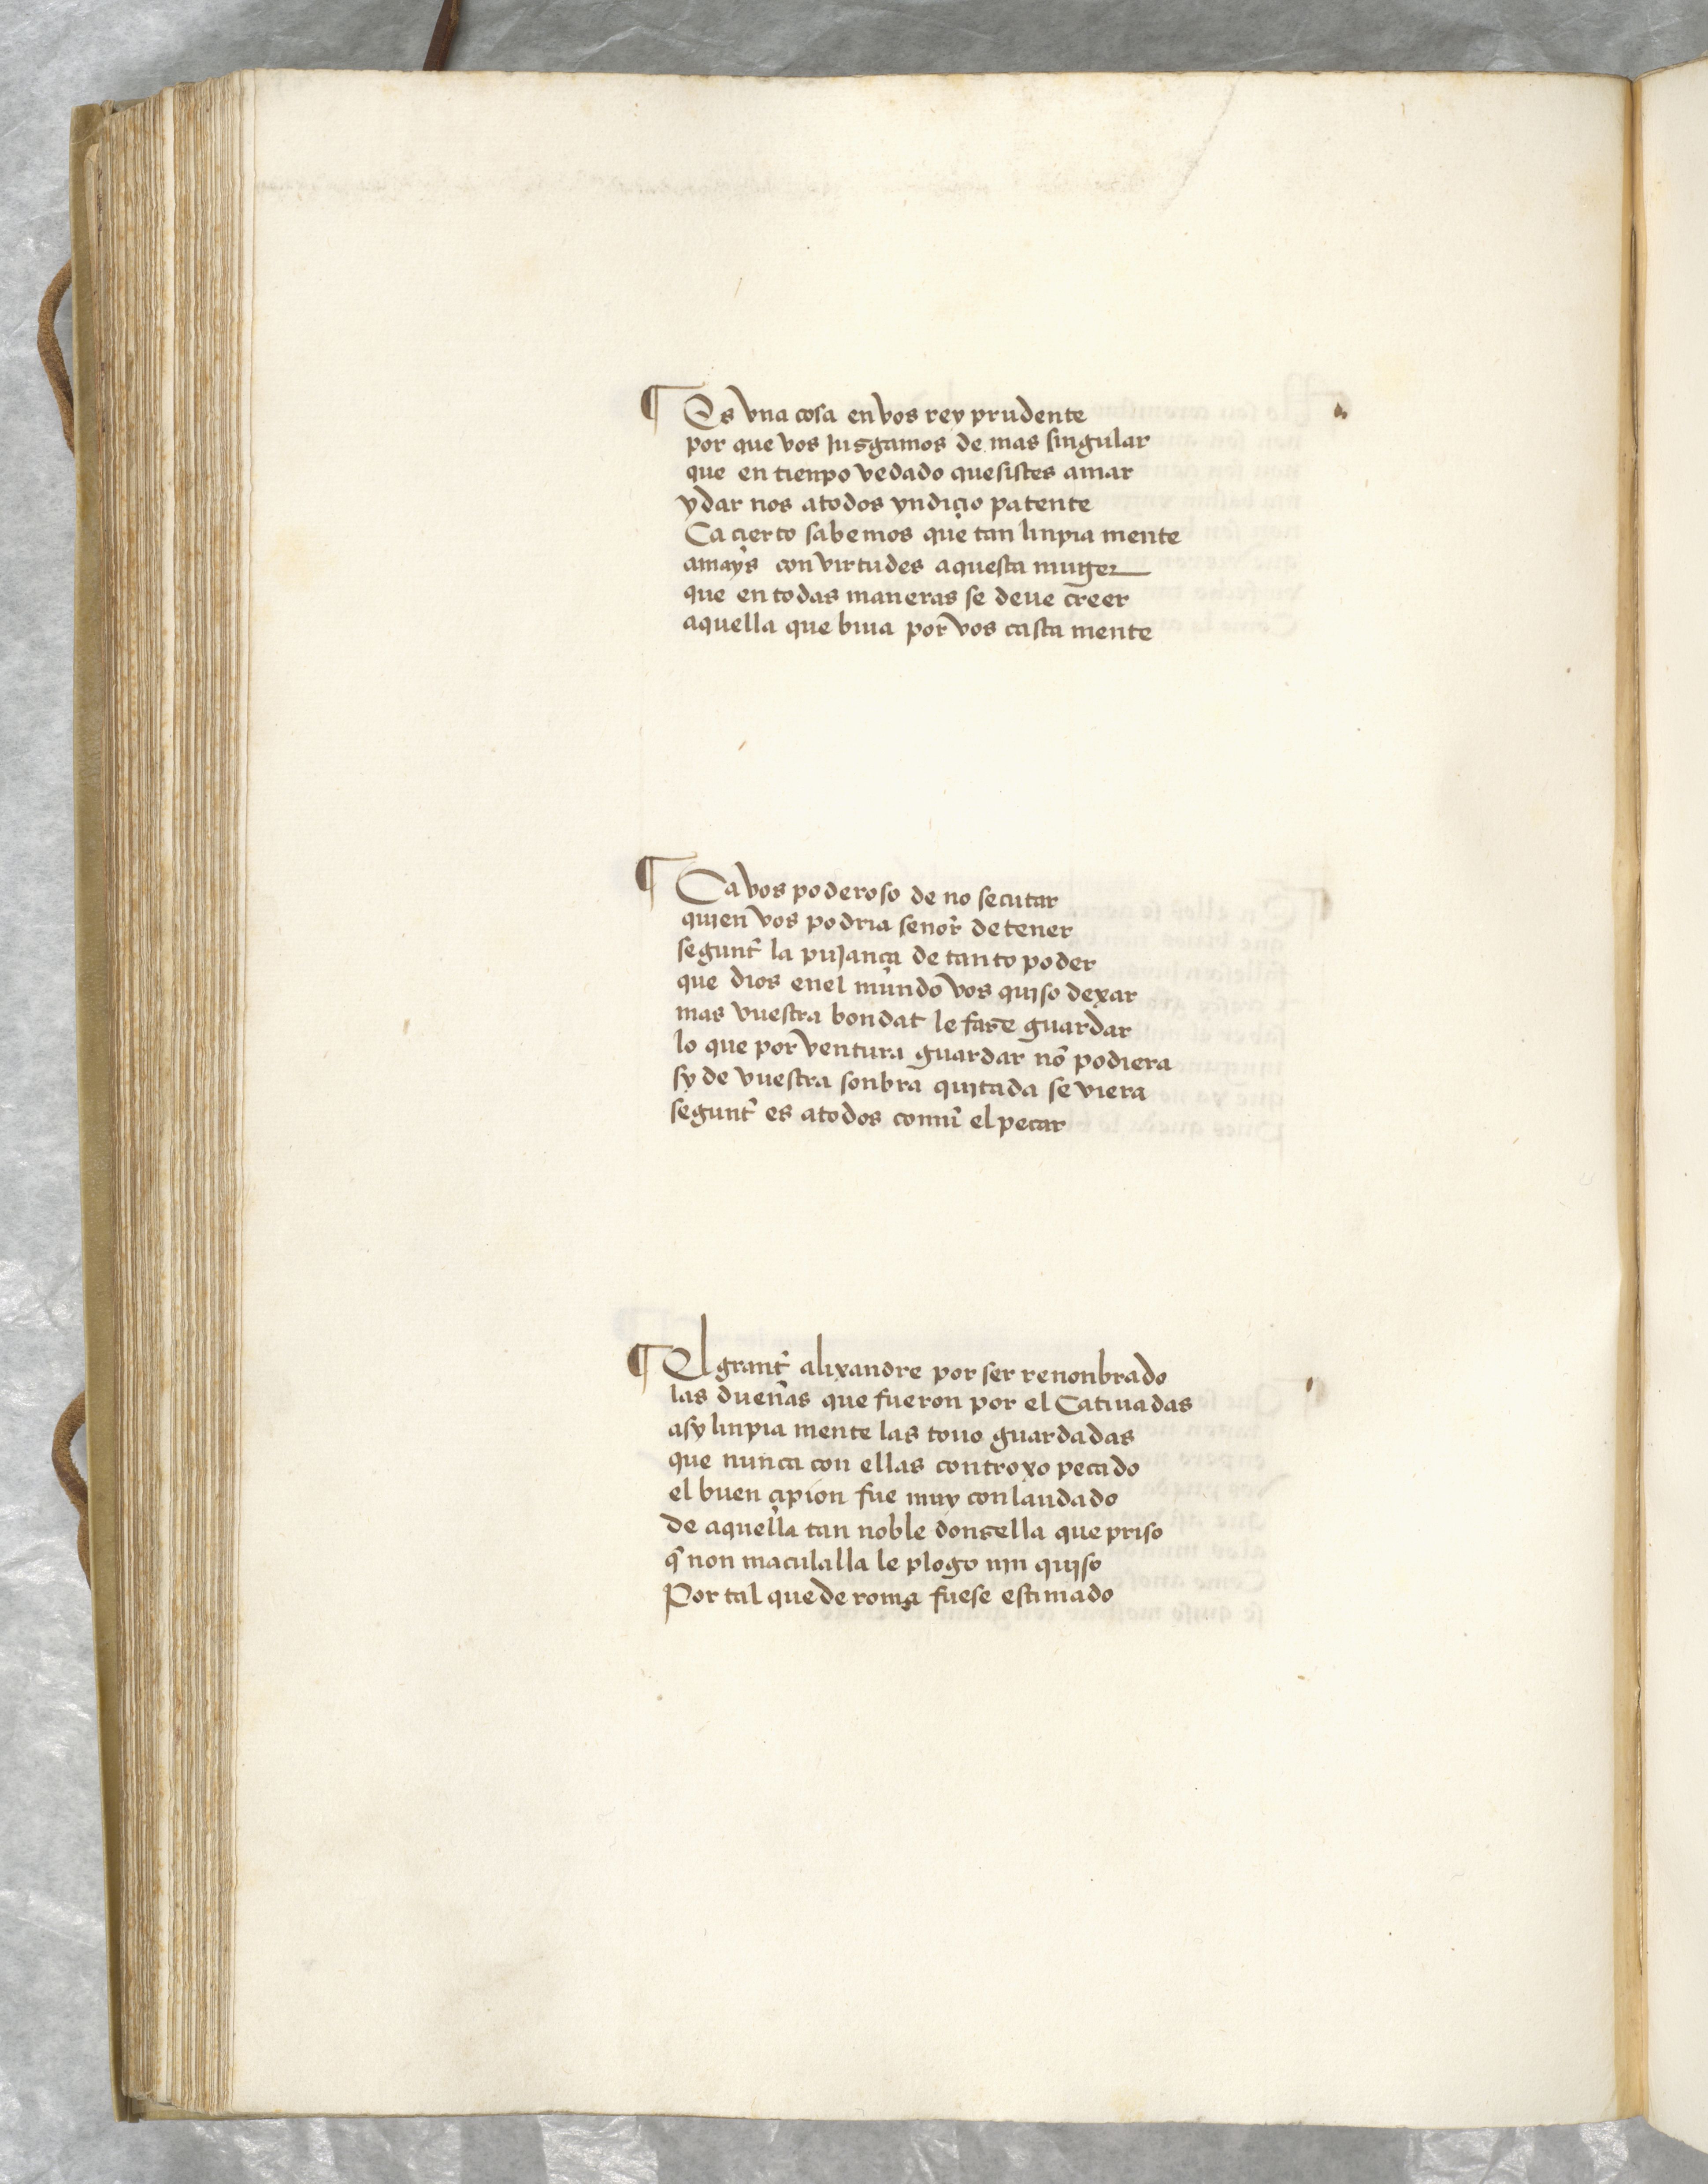 ¶ Es vna cosa en vos rey prudente
por que vos jusgamos de mas singular
que en tienpo vedado quesistes amar
y dar nos atodos yndiçio patente
Ca çierto sabemos que tan linpia mente
amays con virtudes aquesta muger
que en todas maneras se deue creer
aquella que biua por vos casta mente
¶ Ca vos poderoso de no secutar
quien vos podria señor detener
segunt la pujança de tanto poder
que dios enel mundo vos quiso dexar
mas vuestra bondat le fare guardar
lo que por ventura guardar nõ podiera
sy de vuestra sonbra quitada se viera
segunt es atodos comũ el pecar
¶ El grant alixandre por ser renonbrado
las dueñas que fueron por el Catiuadas
asy linpia mente las touo guardadas
que nunca con ellas controxo pecado
el buen çipion fue muy conlaudado
de aquella tan noble donsella que priso
q̃ non maculalla le plogo nin quiso
Por tal que de roma fuese estimado